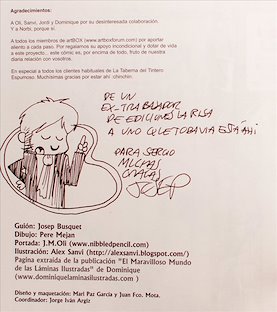 Agradecimientos:
A Oli, Sanvi, Jordi y Dominique por su desinteresada colaboración.
Y a Norbi, porque sí.
A todos los miembros de artBOX (www.artboxforum.com) por aportar
aliento a cada paso. Por regalarnos su apoyo incondicional y dotar de vida
a este proyecto... este cómic es, por encima de todo, fruto de nuestra
diaria relación con vosotros.
En especial a todos los clientes habituales de La Taberna del Tintero
Espumoso: Muchísimas gracias por estar ahí :chinchin:
DE UN
EX-TRABAJADOR
DE EDICIONES LA RISA
A UNO QUE TODAVIA ESTÁ AHÍ
PARA SERGIO
MUCHAS
GRACIAS
JOSEP
Guión: Josep Busquet
Dibujo: Pere Mejan
Portada: J.M.Oli (www.nibbledpencil.com)
Ilustración: Alex Sanvi (http://alexsanvi.blogspot.com/)
Pagina extraida de la publicación "El Maravilloso Mundo
de las Láminas Ilustradas" de Dominique
(www.dominiquelaminasilustradas.com )
Diseño y maquetación: Mari Paz García y Juan Fco. Mota.
Coordinador: Jorge Iván Argiz